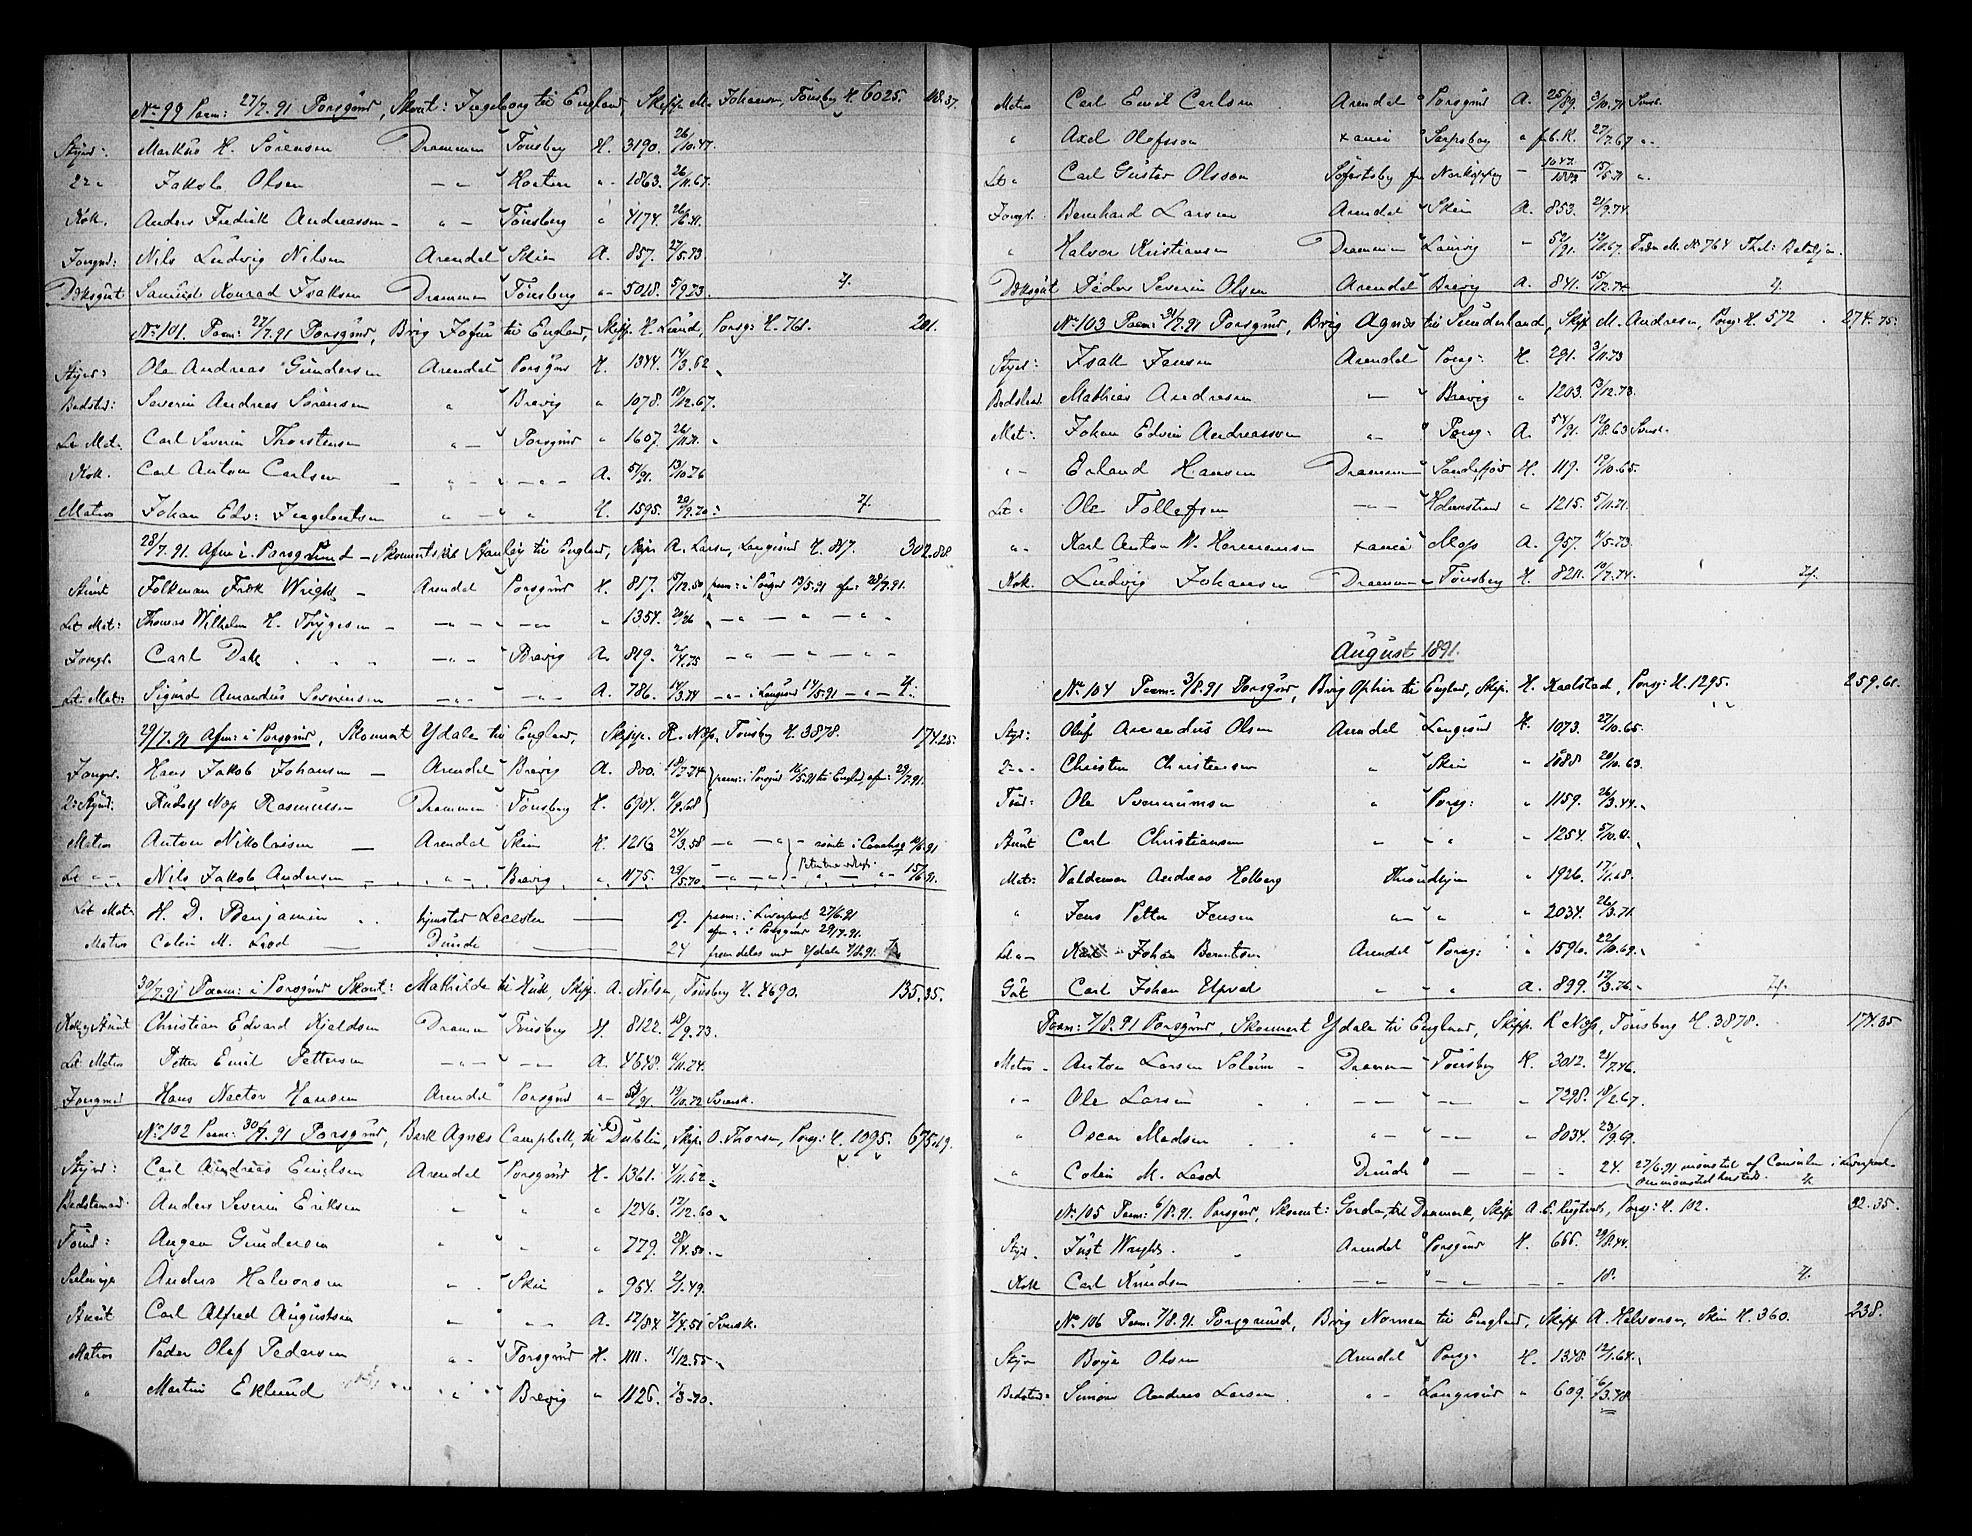 No 99 Paam: 27/7.91 Porsgund, Skont: Ingeborg til England, Skipp. M. Johansen, Tönsbg H. 6025. 168.37.
Styrm: Markus H. Sörensen Drammen Tönsberg H. 3190. 26/10.47.
2den Jakob Olsen — " — Horten " 1863. 26/11.67.
Kok. Anders Fredrik Andreassen — " — Tönsberg " 4174. 26/6.41.
Jongmd: Nils Ludvig Nilsen Arendal Skien A. 857. 27/5.73.
Dæksgut Konrad Isaksen Drammen Tönsberg " 5018. 5/9.73. 7.
No 101. Paam: 27/7.91 Porsgund, Brig til England, Skipp. H. Lund, Porsg: H. 761. 201.
Styrm: Ole Andreas Gundersen Arendal Porsgund H. 1344. 14/3.62
Bedstm: Severin Andreas Sörensen " Brevig " 1078. 18/12.67.
Let Mat. Carl Severin Thorstensen " — Porsgund " 1607. 26/11.71.
Kok. Carl Anton Carlsen — " — — " — A. 5/91. 13/10.76
Matros Johan Edv: Ingebretsen " — " H. 1595. 20/9.70. 7.
28/7.91 Afm: i Porsgrund — Skonnert Stanley til England, Skipr A. Larsen, Langesund H. 817. 302.88.
Stuert Folkman Fredk Wright — Arendal Porsgund H. 817. 15/12.50 paam: i Porsgrd 13/5.91 afm: 28/7.91.
Let Mat: Thomas Wilhelm H. — — " — — " — " 1354. — " — " — " — "
Jongm. Carl Dahl — " — Brevig A. 819. 2/4.75 — " — " — " — "
Let Mat: Sigurd Amandus Severinsen — " — — " — A. 786. 14/3.74 — " — i Langesund 14/5.91 — " — 4.
29/7.91 Afm: i Porsgrund, Skonnert Ydale til England, Skipp. R. Nöss, Tönsbg H. 3878. 174.25.
Jongm. Hans Jakob Johansen — Arendal Brevig A. 800. 18/7.74 paam: i Porsgrd 16/5.91 til England, afm: 29/7.91.
2: Styrm: Rudolf Nöss Rasmussen Drammen Tönsberg H. 6904. 11/9.68
Matros Anton Nikolaisen — Arendal Skien H. 1216 24/3.58 — " — " — römte i 10/6.91
Let " — Nils Jakob Andersen — Brevig " 1175. 29/5.70. — " — " — 15/6.91.
Let Mat. H. D. Benjamin hjemsted Leicester — 19. paam: i Liverpool 27/6.91 afm: i Porsgrund 29/7.91.
Matros Colin M. Leod — Dundee — 24 fremdeles med Ydale 7/8.91.
30/7.91 Paam: i Porsgrund Skont: Mathilde til Hull, Skipp. A. Nilsen, Tönsberg H. 4690. 135.35.
Kok og Stuert Christian Edvard Kjeldsen Drammen Tönsberg H. 8122. 18/9.73.
Let Matros Petter Emil Pettersen — " — — " — A. 4648. 11/11.74.
Jongmd Hans Nector Hansen Arendal Porsgund " 53/91. 19/10.72 Svensk.
No 102 Paam: 30/7.91 Porsgund, Bark Agnes Campbell, til Dublin, Skipr O. Thorsen, Porsg: H. 1095. 675.19.
Styrm: Carl Andreas Emilsen Arendal Porsgund H. 1361. 4/11.62.
Bedstemand: Anders Severin Eriksen " " " 1246. 12/12.60.
Tömd: Gundersen " " " 779. 28/4.50.
Seilmager Anders Halvorsen " Skien " 964. 2/1.49.
Stuert Carl Alfred Augustsen " " A. 12/84. 7/4.51 Svensk.
Matros Peder Olaf Pedersen " Porsgund H. 1111. 11/12.55.
" Martin Eklund " Brevig " 1126. 1/3.70.
Matros Carl Emil Carlsen Arendal Porsgund A. 25/89. 3/10.71 Svensk.
" Axel Olofsson xania Sarpsborg " f.b.K. 27/7.67 "
Let " Carl Gustav Olsson Söfartsbg fra Norköpping — 1047/1889 15/5.71 "
Jongm. Bernhard Larsen Arendal Skien A. 853. 21/9.74.
" Halvor Kristiansen Drammen Laurvig " 52/91. 12/11.67. Fram M. No 764 Thel: Bataljon.
Dæksgut Peder Severin Olsen Arendal Brevig A. 841. 15/12.74. 4.
No 103 Paam: 31/7.91 Porsgund, Brig Agnes til Sunderland, Skipr M. Andresen, Porsg: H. 572. 274.75.
Styrm: Isak Jansen Arendal Porsg: H. 291. 3/11.73
Bedstemd. Mathias Andresen — Brevig " 1203. 13/12.73.
Mat: Johan Edvin Andreassen " — Porsg: A. 54/91. 12/8.63 Svensk.
" — Erland Hansen Drammen Sandefjord H. 119. 19/10.65.
Let " Ole Tollefsen — " — Holmestrand " 1215. 5/11.71.
" — Karl Anton W. Hermansen xania Moss A. 957. 11/5.73.
Kok. Ludvig Johansen Drammen Tönsberg H. 8211. 19/7.74. 7.
August 1891.
No 104 Paam: 3/8.91 Porsgund, Brig Ophir til England, Skip. H. Kaalstad, Porsg: H. 1295. 259.61.
Styr: Oluf Amandus Olsen Arendal Langesund H. 1073. 27/10.65.
2 " Christen Christensen " Skien " 1088 20/10.63.
Tömd: Ole " Porsg: " 1159. 26/3.44.
Stuert Carl Christiansen " " " 1254. 5/10.61.
Mat: Valdemar Andreas Holberg Throndhjem " 1926. 17/1.68.
" Jens Petter Jensen " — " " 2034. 26/3.71.
Let " — Johan Berntsen Arendal Porsg: " 1596. 22/10.69.
Gut Carl Johan " " A. 899. 17/3.76.
Paam: 7/8.91 Porsgund, Skonnert Ydale til England, Skipp. R. Nöss, Tönsberg H. 3878. 174.35
Matros — Anton Larsen Solum — Drammen Tönsberg H. 3012. 24/7.46.
" — Ole Larsen " 7298. 18/2.67.
" Oscar Madsen " — — " — " 8034. 23/9.69.
" Colin M. Leod Dundee — — " 24. 27/6.91 mönstret af Consulen i Liverpool.
4.
No 105 Paam: 6/8.91. Porsgund, Skonnt: Gerda, til Danmark, Skipp. A. E. Porsg: H. 102. 32.35.
Styrm. Just Wright. Arendal Porsgund H. 666. 29/8.44.
Kok Carl Knudsen — " — — " — — — 18. 4.
No 106 Paam: 7/8.91. Porsgrund, Brig Norman til England, Skipp. A. Halvorsen, Skien H. 360. 238.
Styr Börje Olsen Arendal Porsg: H. 1378. 12/1.64.
Bedstm: Simon Andreas Larsen " — Langesund " 609. 6/3.48.